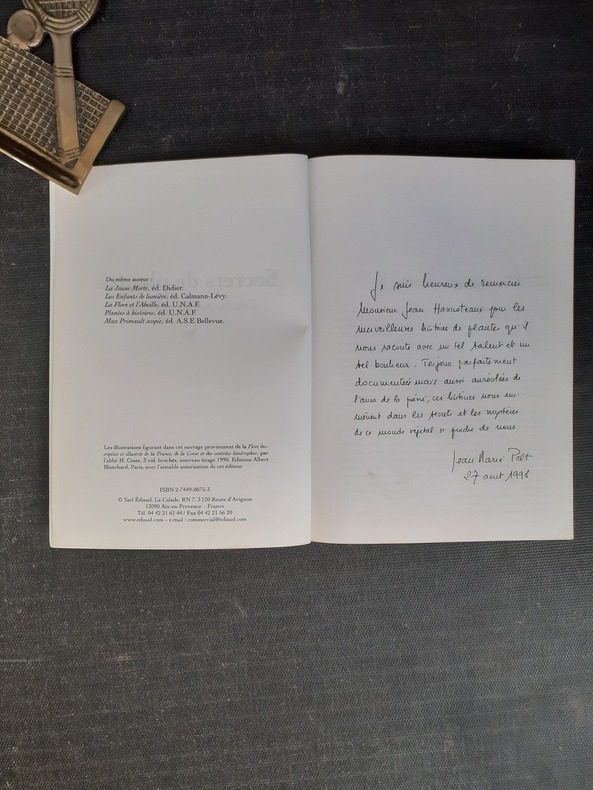 Du même auteur :
La Jeune Morte, éd. Didier.
Les Enfants de lumière, éd. Calmann-Lévy.
La Flore et l'Abeille, éd. U.N.A.F.
Plantes à histoires, éd. U.N.A.F.
Max Primault scopie, éd. A.S.F. Bellevue.
Les illustrations figurant dans cet ouvrage proviennent de la Flore des-
criptive et illustrée de la France, de la Corse et des contrées limitrophes, par
l'abbé H. Coste, 3 vol. brochés, nouveau tirage 1990, Editions Albert
Blanchard, Paris, avec l'aimable autorisation de cet éditeur.
ISBN 2-7449-0075-3
© Sarl Édisud, La Calade, RN 7, 3120 Route d'Avignon
13090 Aix-en-Provence – France
Tél. 04 42 21 61 44 / Fax 04 42 21 56 20
www.edisud.com – e.mail : commercial@edisud.com
Je suis heureux de remercier
Monsieur Jean Hannoteaux pour les
merveilleuses histoire de plantes qu'il
nous raconte avec un tel talent et un
tel bonheur. Toujours parfaitement
documentées mais aussi auréolées de
l'aura de la poésie, ces histoires nous em-
mènent dans les secrets et les mystères
de ce monde végétal si proche de nous.
Jean Marie Pelt
27 aout 1998